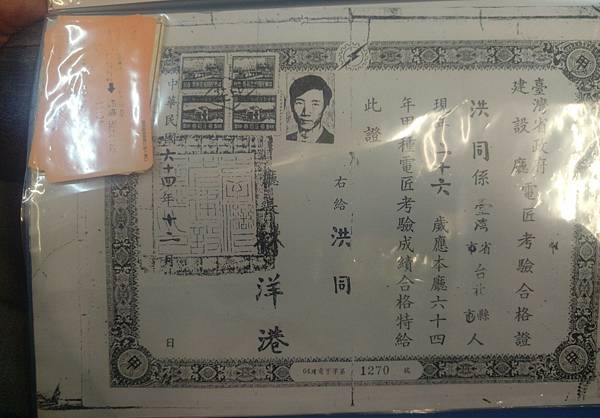 臺灣省政府
建設廳電匠考驗合格證
洪同係臺灣省台北縣人
市 市
現年二十六歲應本廳六十四
年甲種電匠考驗成績合格特給
此證
右給 洪同
廳長林洋港
中華民國六十四年十二月 日
1270 號